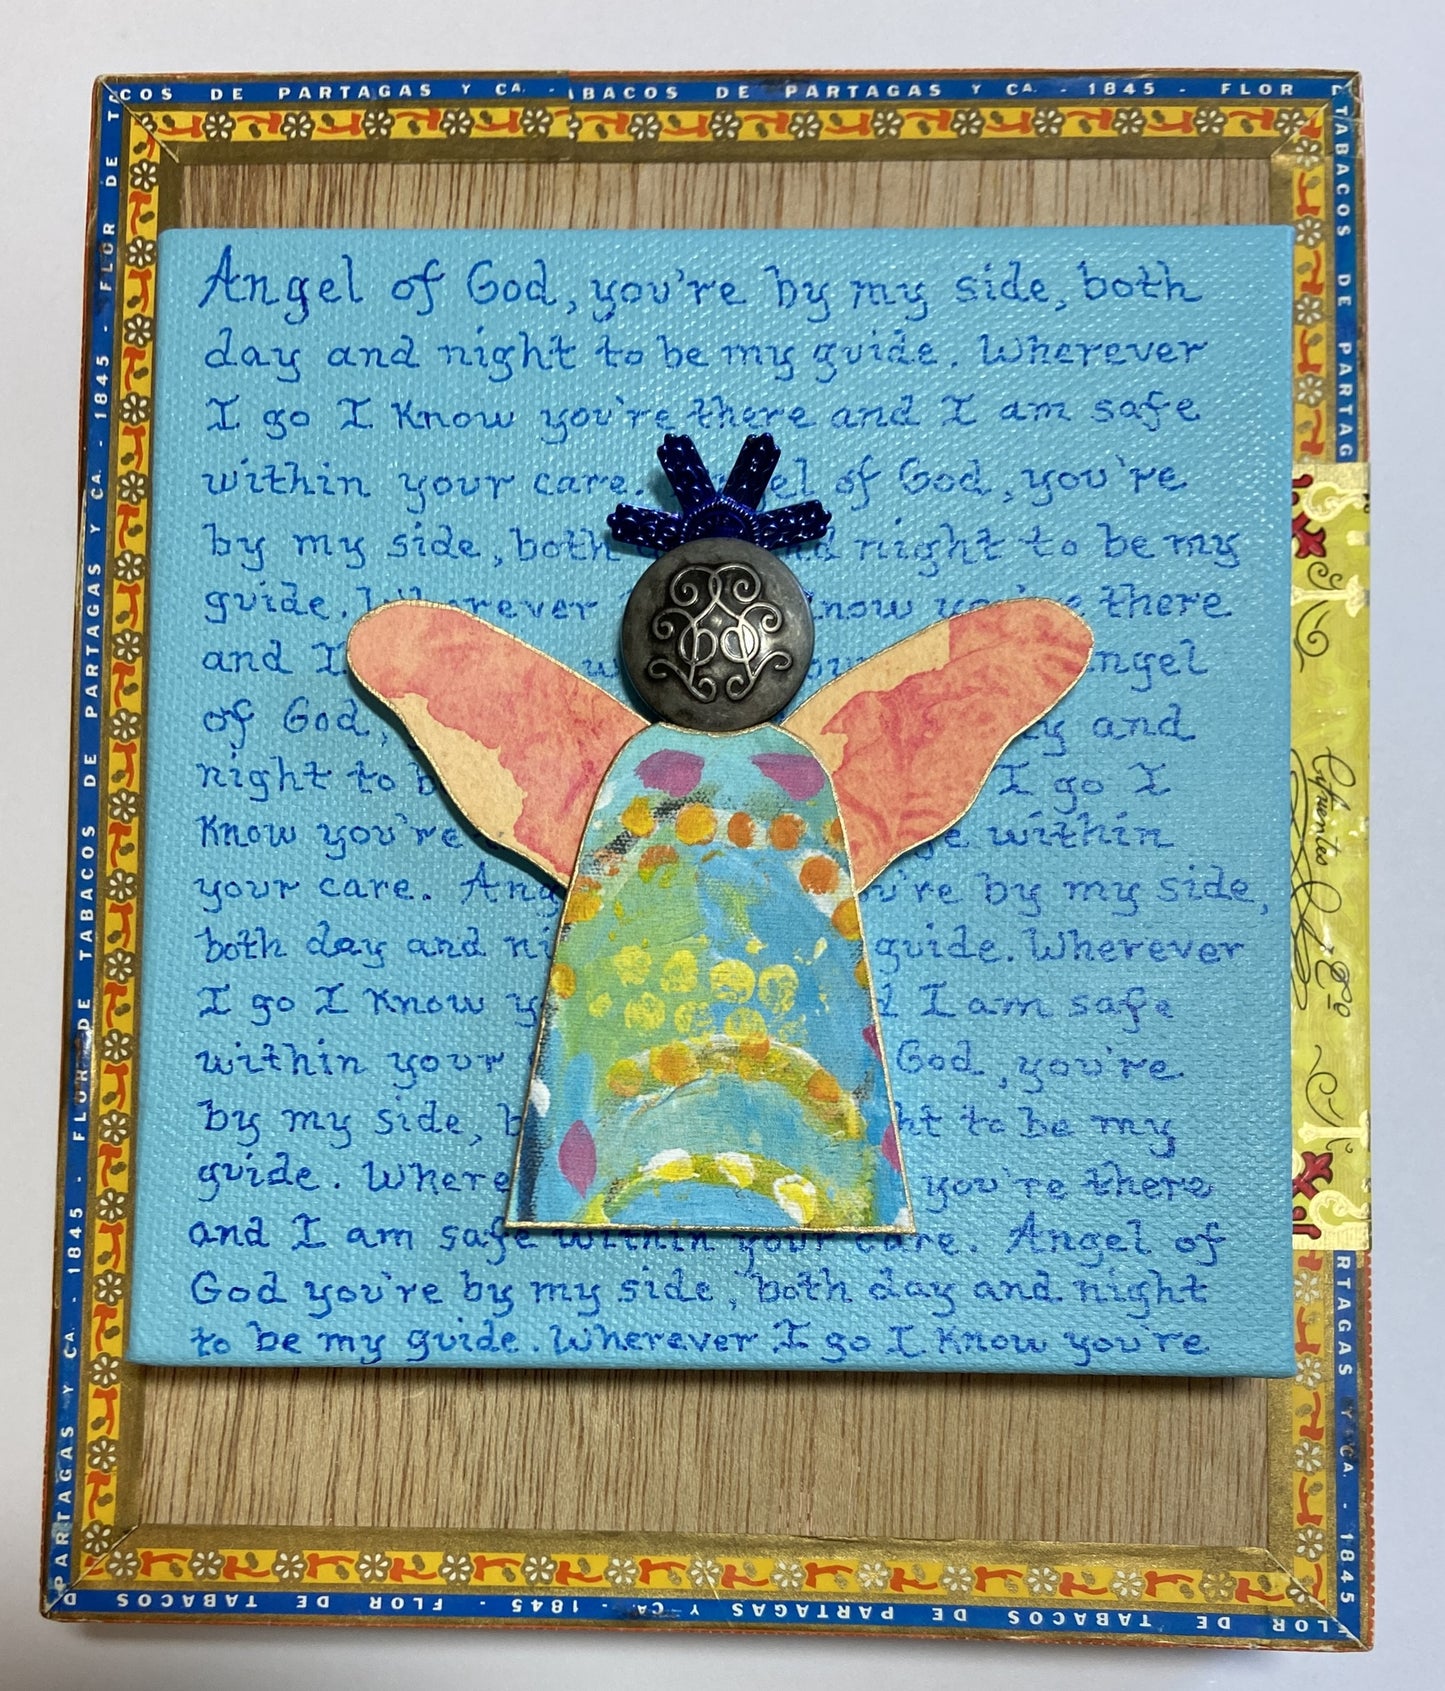 COS DE PARTAGAS Y CA. - ABACOS DE PARTAGAS Y CA. - 1845 - FLOR D
FLOR DE TABACOS DE PARTAGAS Y CA. - 1845 - FLOR DE TABACOS DE PARTAGAS Y CA. - 1845 - FLOR DE TA
Angel of God, you're by my side, both
day and night to be my guide. Wherever
I go I know you're there and I am safe
within your care. el of God, you're
by my side, both night to be my
guide. Wherever know you're there
and I ngel
of God, and
night to b I go I
know you're within
your care. Ang u're by my side,
both day and ni guide. Wherever
I go I know y I am safe
within your God, you're
by my side, b ht to be my
guide. Where you're there
and I am safe within your care. Angel of
God you're by my side, both day and night
to be my guide. Wherever I go I know you're
TABACOS DE PARTAG
Cifuentes
RTAGAS Y CA. - 1845
FLOR DE TABACOS DE PARTAGAS Y CA. - 1845 - FLOR DE TABACOS D